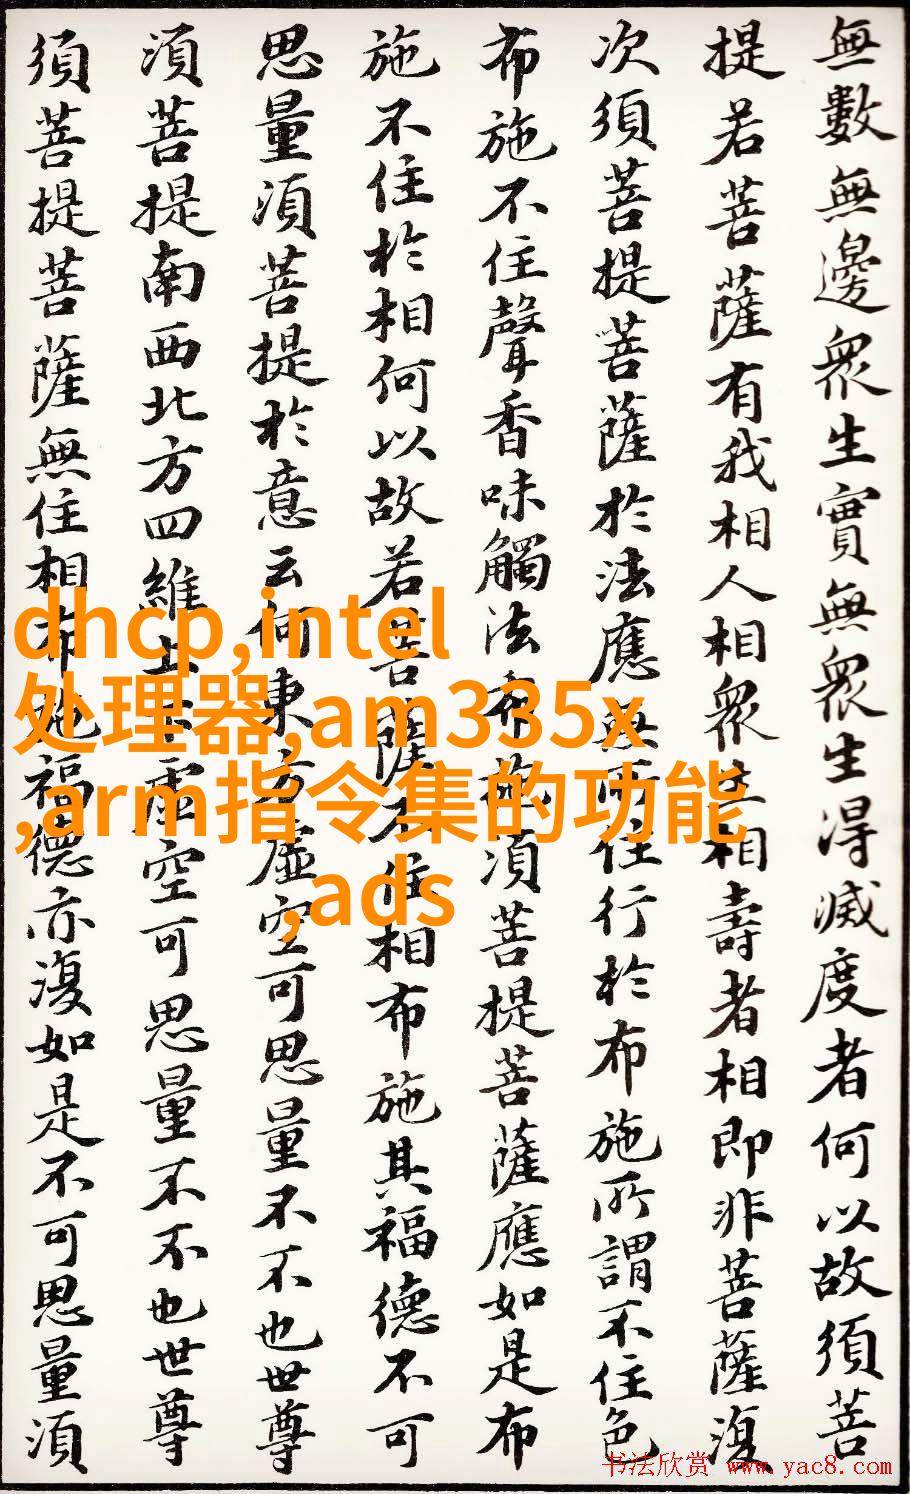 無數無邊衆生實無衆生得滅度者何以故須菩
提若菩薩有我相人相衆生相壽者相即非菩薩復
次須菩提菩薩於法應無所住行於布施所謂不住色
布施不住聲香味觸法布施須菩提菩薩應如是布
施不住於相何以故若菩薩不住相布施其福德不可
思量須菩提於意云何東方虛空可思量不不也世尊
須菩提南西北方四維上下虛空可思量不不也世尊
須菩提菩薩無住相布施福德亦復如是不可思量須
dhcp,intel
处理器,am335x
,arm指令集的功能
,ads
书法欣赏 www.yac8.com